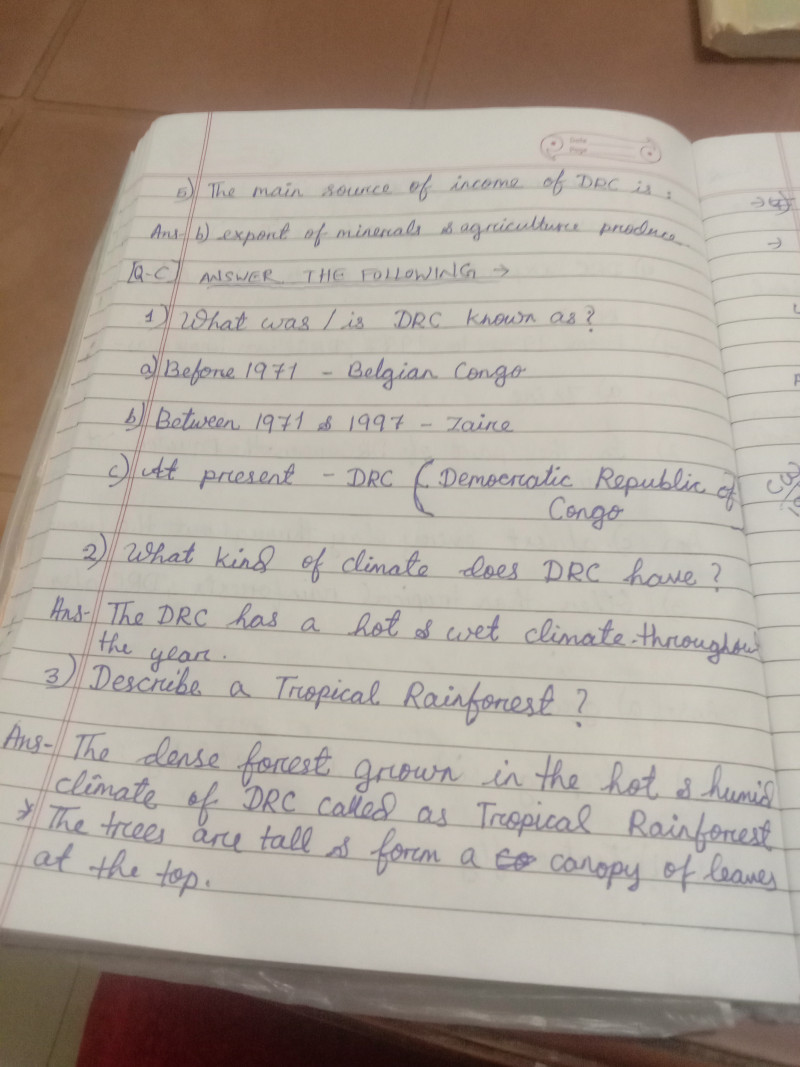 Date
Page
5) The main source of income of DRC is :
Ans- b) export of minerals & agriculture produce.
[Q-C] ANSWER THE FOLLOWING →
1) What was / is DRC known as?
a) Before 1971 - Belgian Congo
b) Between 1971 & 1997 - Zaire
c) At present - DRC ( Democratic Republic of
Congo
2) What kind of climate does DRC have?
Ans- The DRC has a hot & wet climate throughout
the year.
3) Describe a Tropical Rainforest?
Ans- The dense forest grown in the hot & humid
climate of DRC called as Tropical Rainforest
* The trees are tall & form a canopy of leaves
at the top.